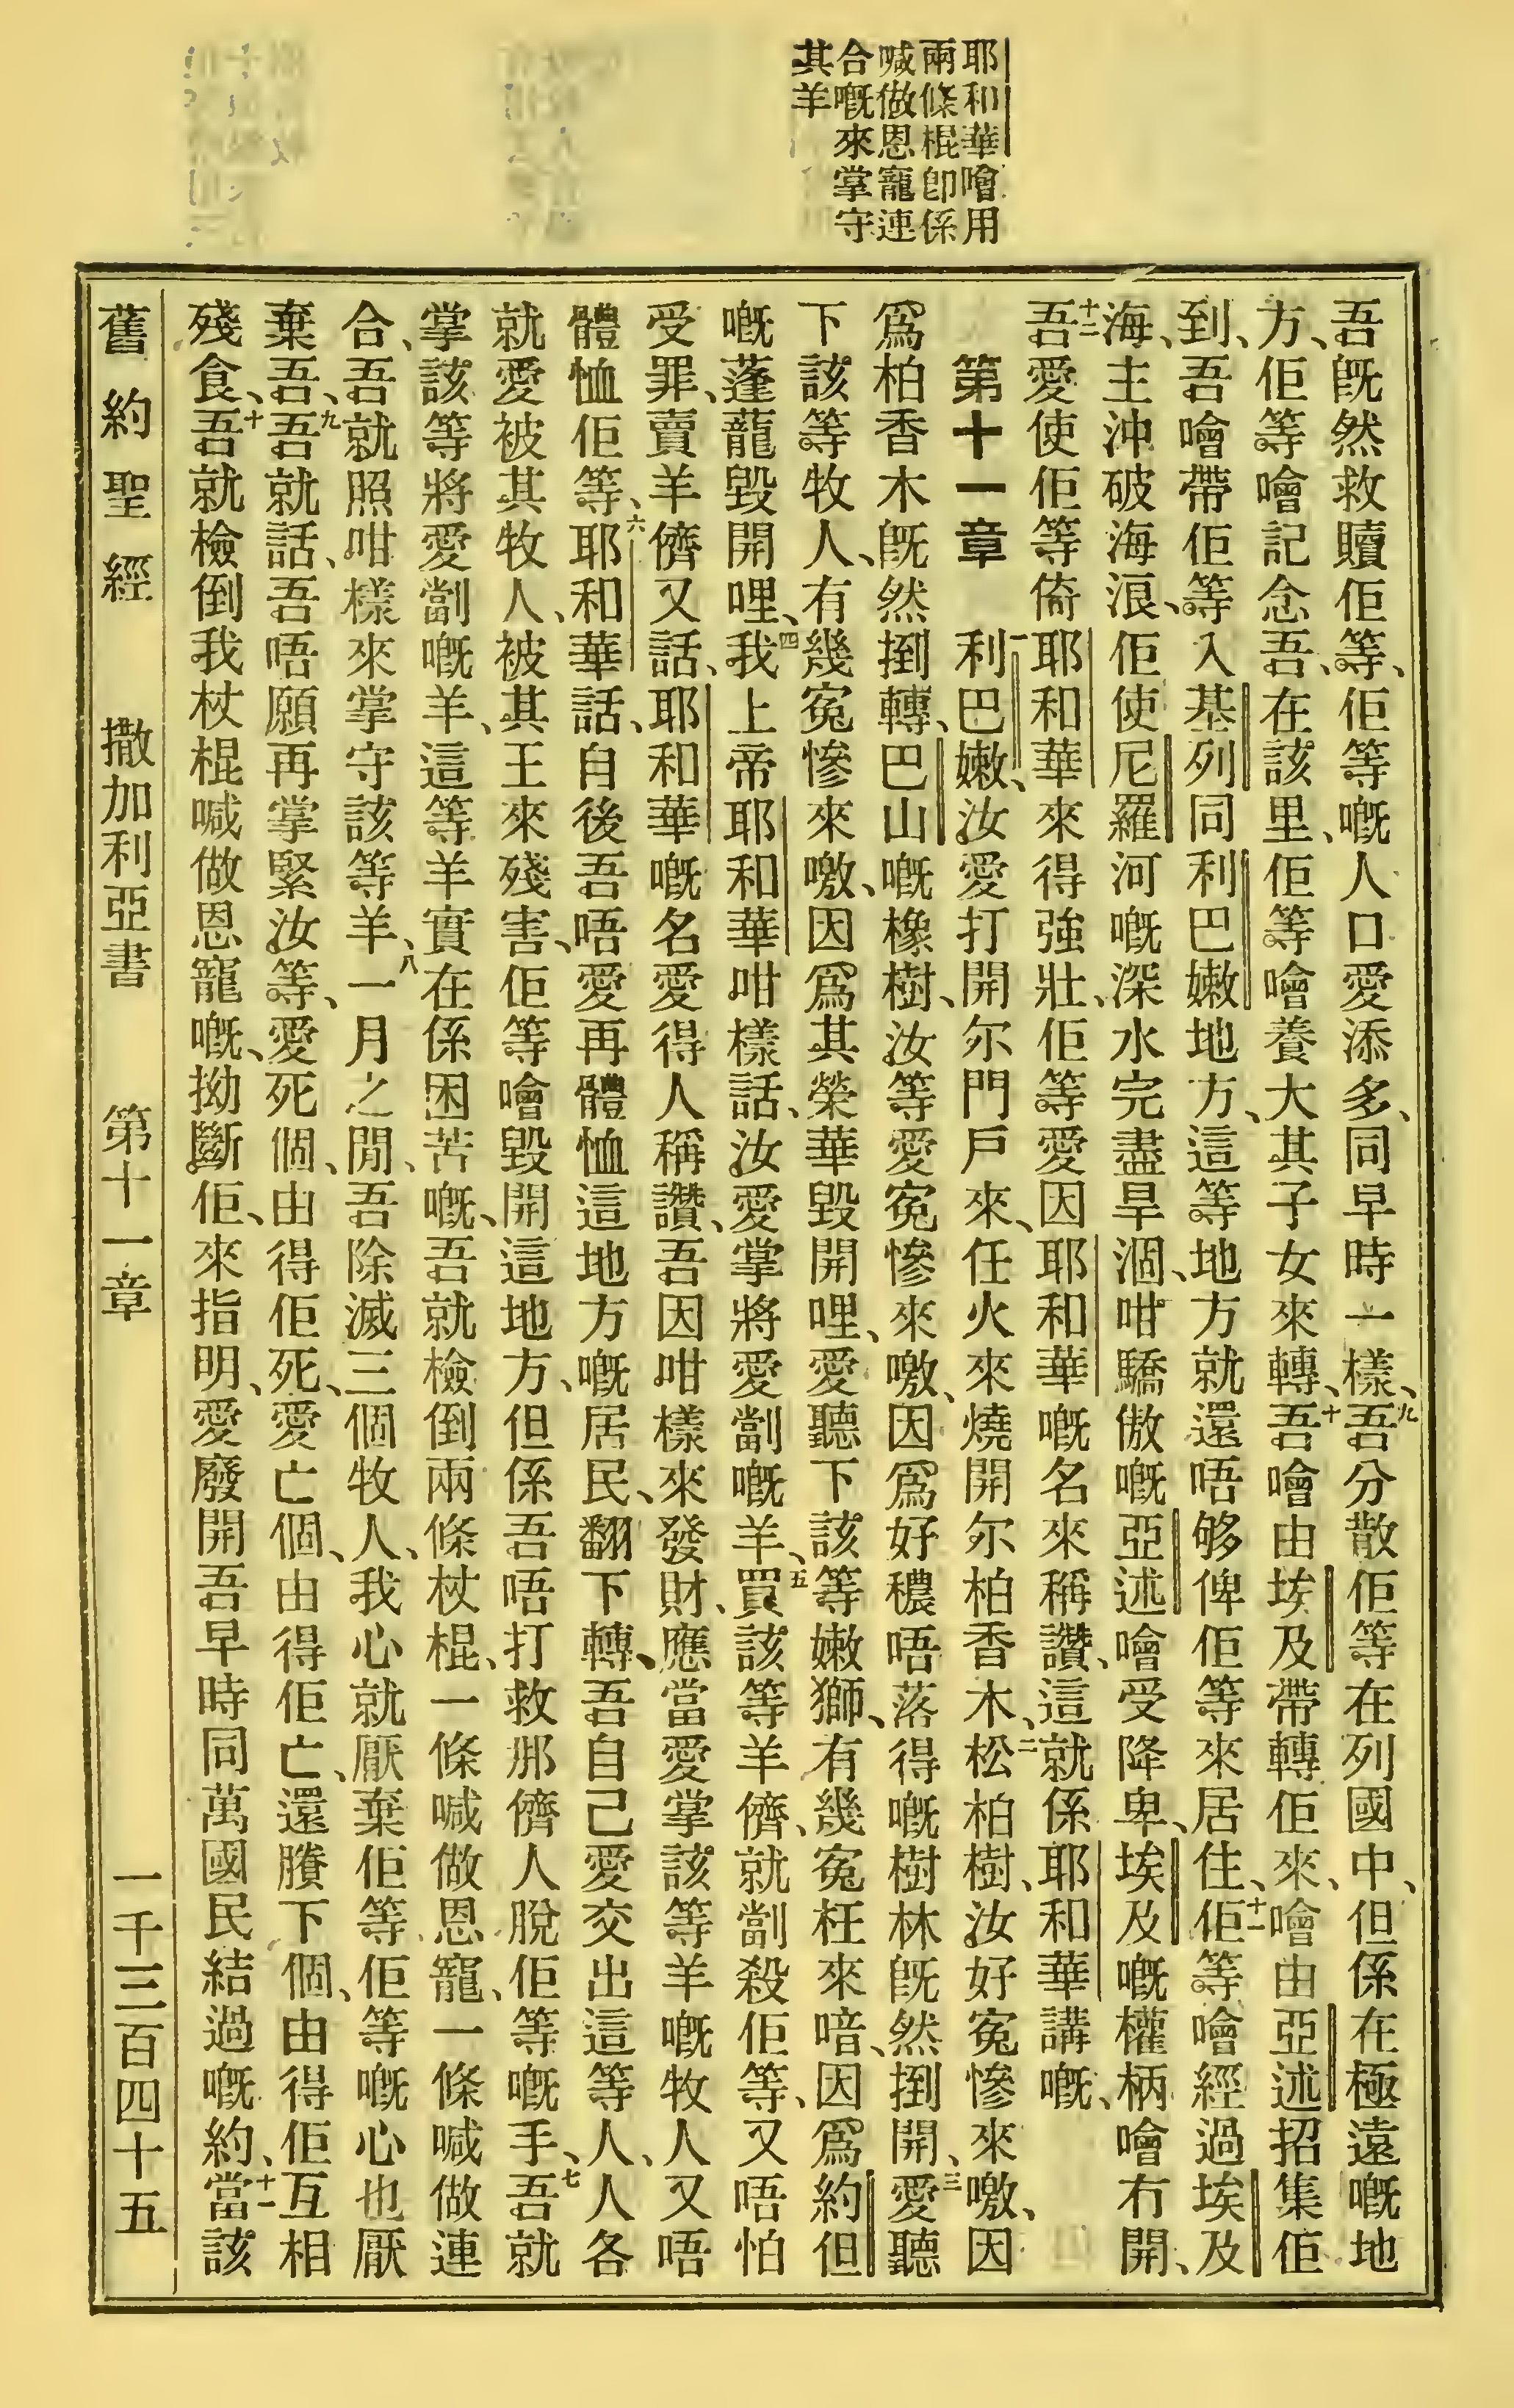 耶和華噲用
兩條棍卽係
喊做恩寵連
合嘅來掌守
其羊
吾旣然救贖佢等、佢等嘅人口愛添多、同早時一樣、九吾分散佢等在列國中、但係在極遠嘅地
方、佢等噲記念吾、在該里、佢等噲養大其子女來轉、十吾噲由埃及帶轉佢來、噲由亞述招集佢
到、吾噲帶佢等入基列同利巴嫩地方、這等地方就還唔够俾佢等來居住、十一佢等噲經過埃及
海、主沖破海浪、佢使尼羅河嘅深水完盡旱涸、咁驕傲嘅亞述噲受降卑、埃及嘅權柄噲冇開、
十二吾愛使佢等倚耶和華來得強壯、佢等愛因耶和華嘅名來稱讚、這就係耶和華講嘅、
第十一章　一利巴嫩、汝愛打開尔門戶來、任火來燒開尔柏香木、二松柏樹、汝好寃慘來噭、因
爲柏香木旣然捯轉、巴山嘅橡樹、汝等愛寃慘來噭、因爲好穠唔落得嘅樹林旣然捯開、三愛聽
下該等牧人、有幾寃慘來噭、因爲其榮華毀開哩、愛聽下該等嫩獅、有幾寃枉來喑、因爲約但
嘅蓬蘢毀開哩、四我上帝耶和華咁樣話、汝愛掌將愛劏嘅羊、五買該等羊儕、就劏殺佢等、又唔怕
受罪、賣羊儕又話、耶和華嘅名愛得人稱讚、吾因咁樣來發財、應當愛掌該等羊嘅牧人、又唔
體恤佢等、六耶和華話、自後吾唔愛再體恤這地方嘅居民、翻下轉、吾自己愛交出這等人、人各
就愛被其牧人、被其王來殘害、佢等噲毀開這地方、但係吾唔打救那儕人脫佢等嘅手、七吾就
掌該等將愛劏嘅羊、這等羊實在係困苦嘅、吾就檢倒兩條杖棍、一條喊做恩寵、一條喊做連
合、吾就照咁樣來掌守該等羊、八一月之閒、吾除滅三個牧人、我心就厭棄佢等、佢等嘅心也厭
棄吾、九吾就話、吾唔願再掌緊汝等、愛死個、由得佢死、愛亡個、由得佢亡、還賸下個、由得佢互相
殘食、十吾就檢倒我杖棍喊做恩寵嘅、拗斷佢、來指明、愛廢開吾早時同萬國民結過嘅約、十一當該
舊約聖經　撒加利亞書　第十一章　一千三百四十五